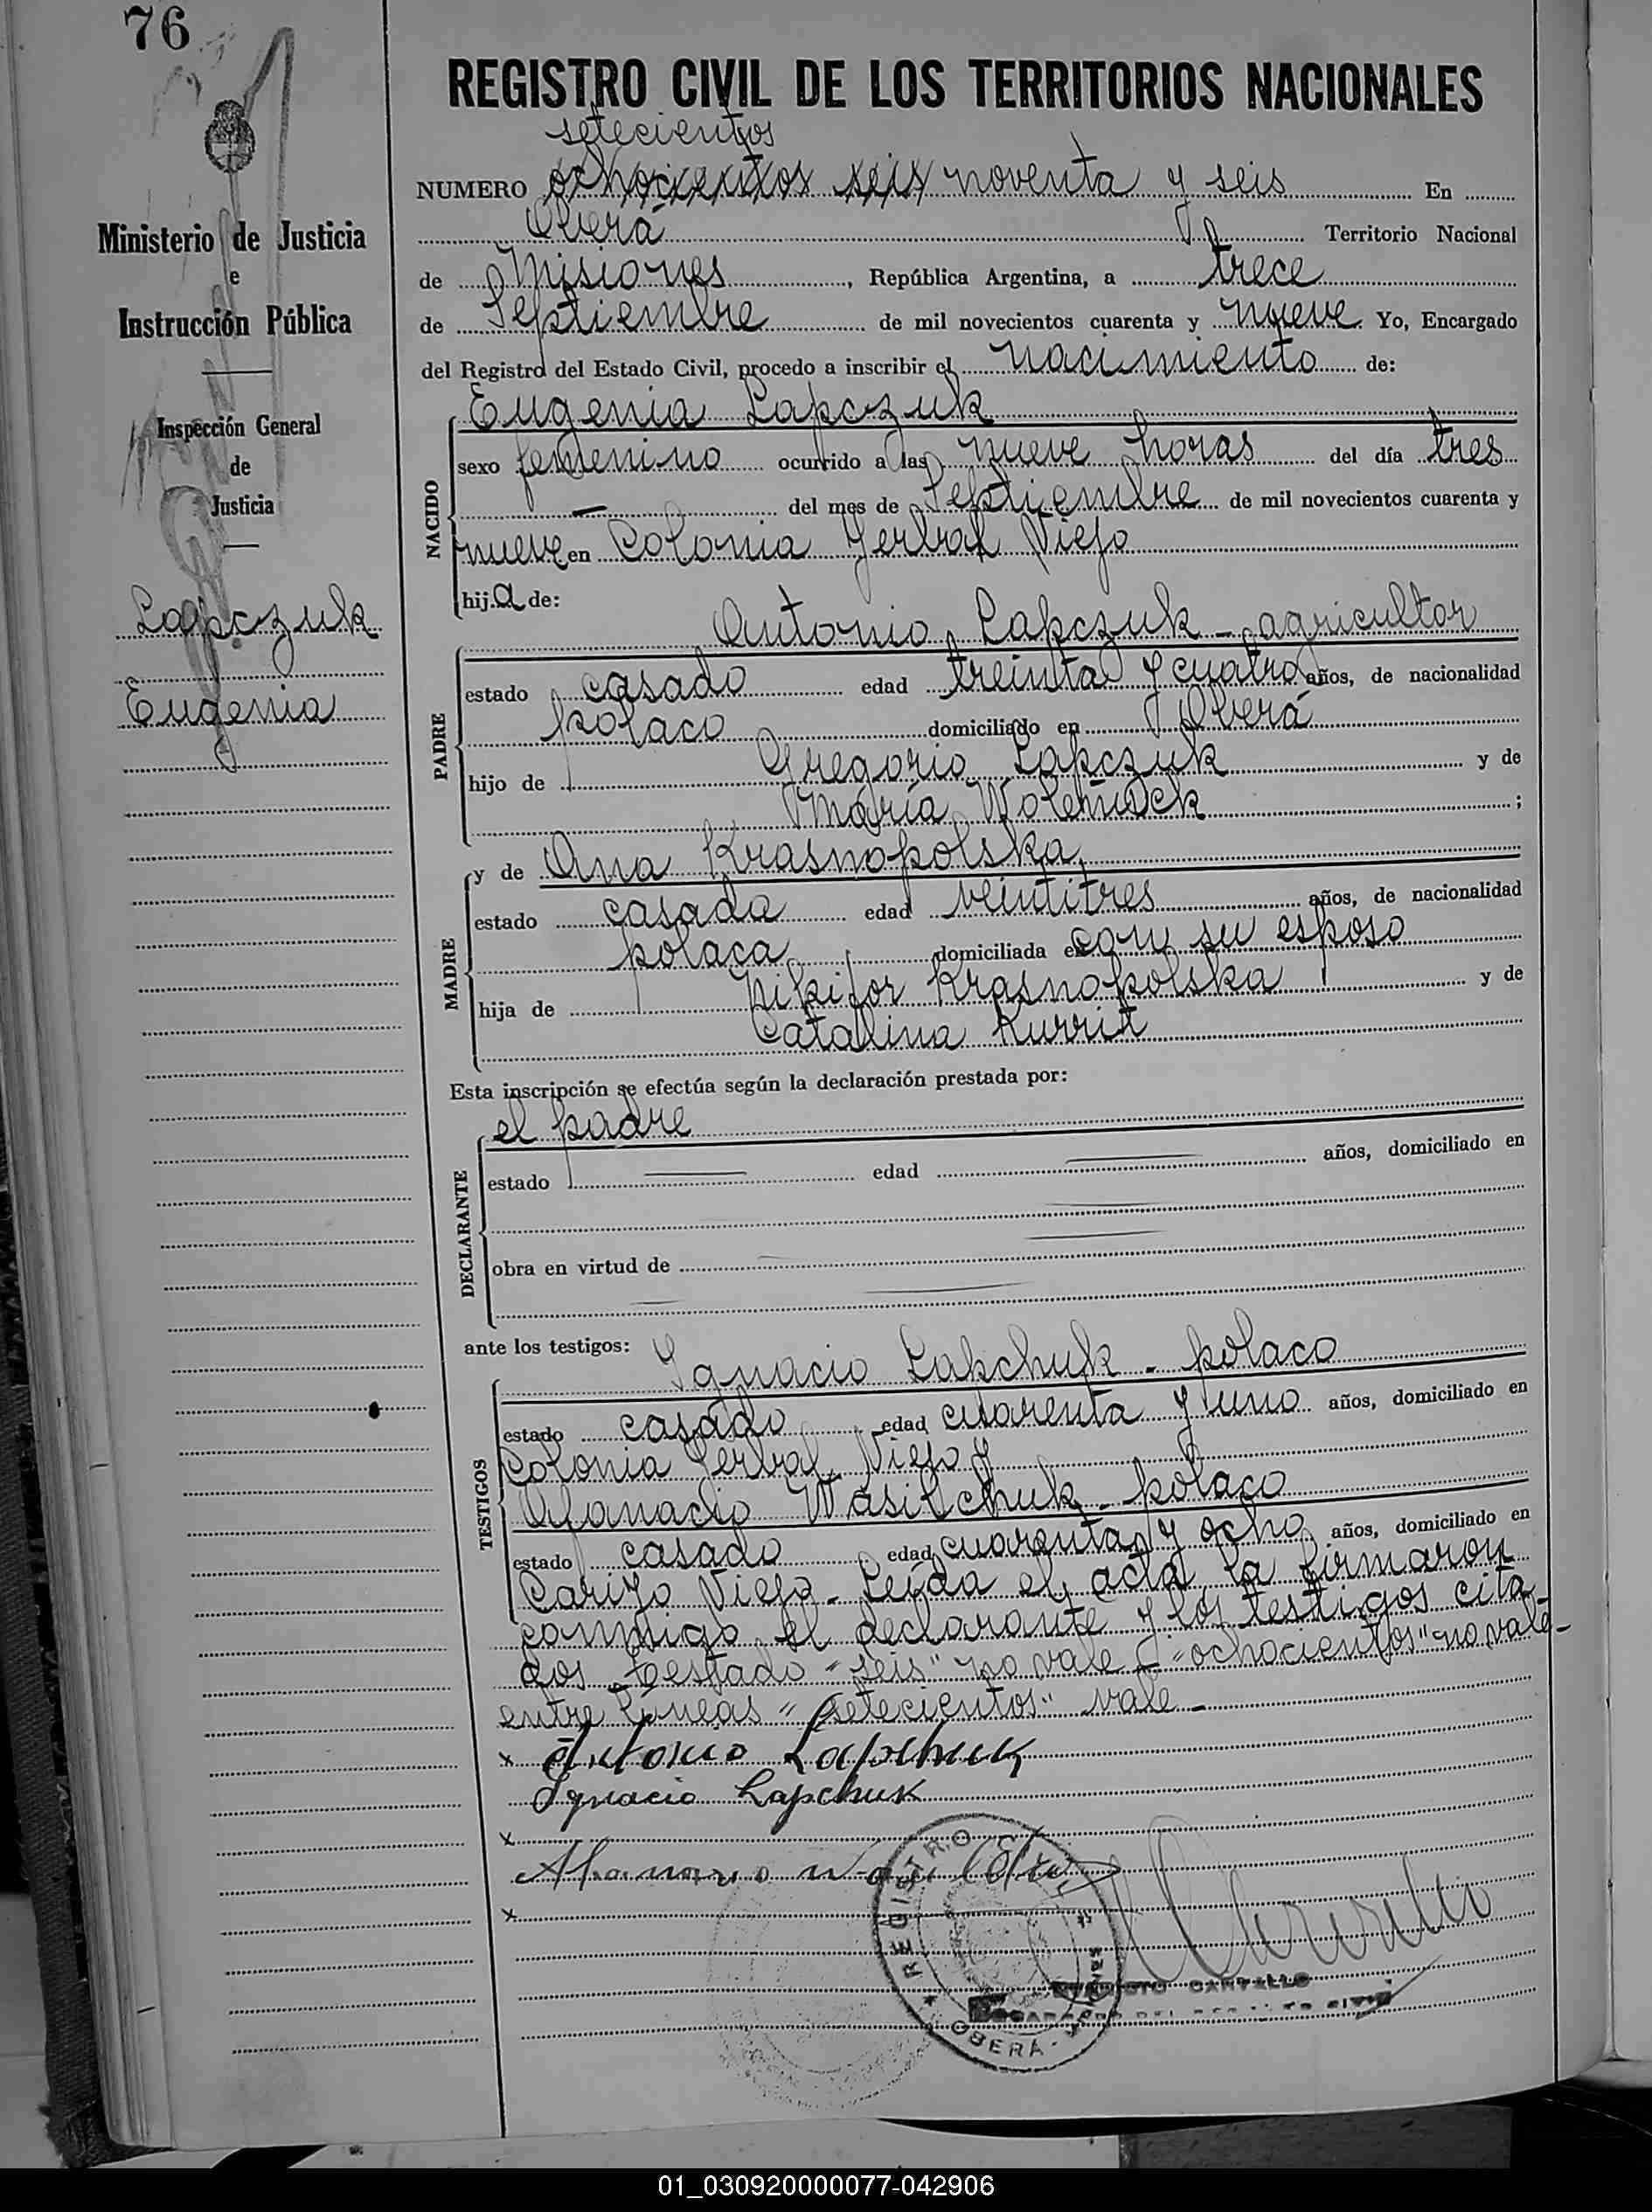 76
REGISTRO CIVIL DE LOS TERRITORIOS NACIONALES
setecientos
NUMERO ochocientos seis noventa y seis En
Oberá Territorio Nacional
de Misiones, República Argentina, a trece
de Septiembre de mil novecientos cuarenta y nueve. Yo, Encargado
del Registro del Estado Civil, procedo a inscribir el nacimiento de:
Ministerio de Justicia
e
Instrucción Pública
Inspección General
de
Justicia
Lapczuk
Eugenia
NACIDO
Eugenia Lapczuk
sexo femenino ocurrido a las nueve horas del día tres
— del mes de Septiembre de mil novecientos cuarenta y
nueve en Colonia Yerbal Viejo
hija de:
PADRE
Antonio Lapczuk - agricultor
estado casado edad treinta y cuatro años, de nacionalidad
polaco domiciliado en Oberá
hijo de Gregorio Lapczuk y de
María ;
MADRE
y de Ana Krasnopolska
estado casada edad veintitres años, de nacionalidad
polaca domiciliada en con su esposo
hija de Nikifor Krasnopolska y de
Catalina Kurrit
Esta inscripción se efectúa según la declaración prestada por:
DECLARANTE
el padre
estado — edad — años, domiciliado en
obra en virtud de
ante los testigos:
TESTIGOS
Ignacio Lapchuk - polaco
estado casado edad cuarenta y uno años, domiciliado en
Colonia Yerbal Viejo y
Afanacio Wasilchuk - polaco
estado casado edad cuarenta y ocho años, domiciliado en
Viejo - Leída el acta la firmaron
conmigo el declarante y los testigos cita
dos - Testado "seis" no vale - "ochocientos" no vale -
entre líneas "setecientos" vale -
x Antonio Lapchuk
Ignacio Lapchuk
x
Afanazio
x
REGISTRO
OBERÁ -
CARVALLO
ENCARGADO DEL REGISTRO CIVIL
01_030920000077-042906